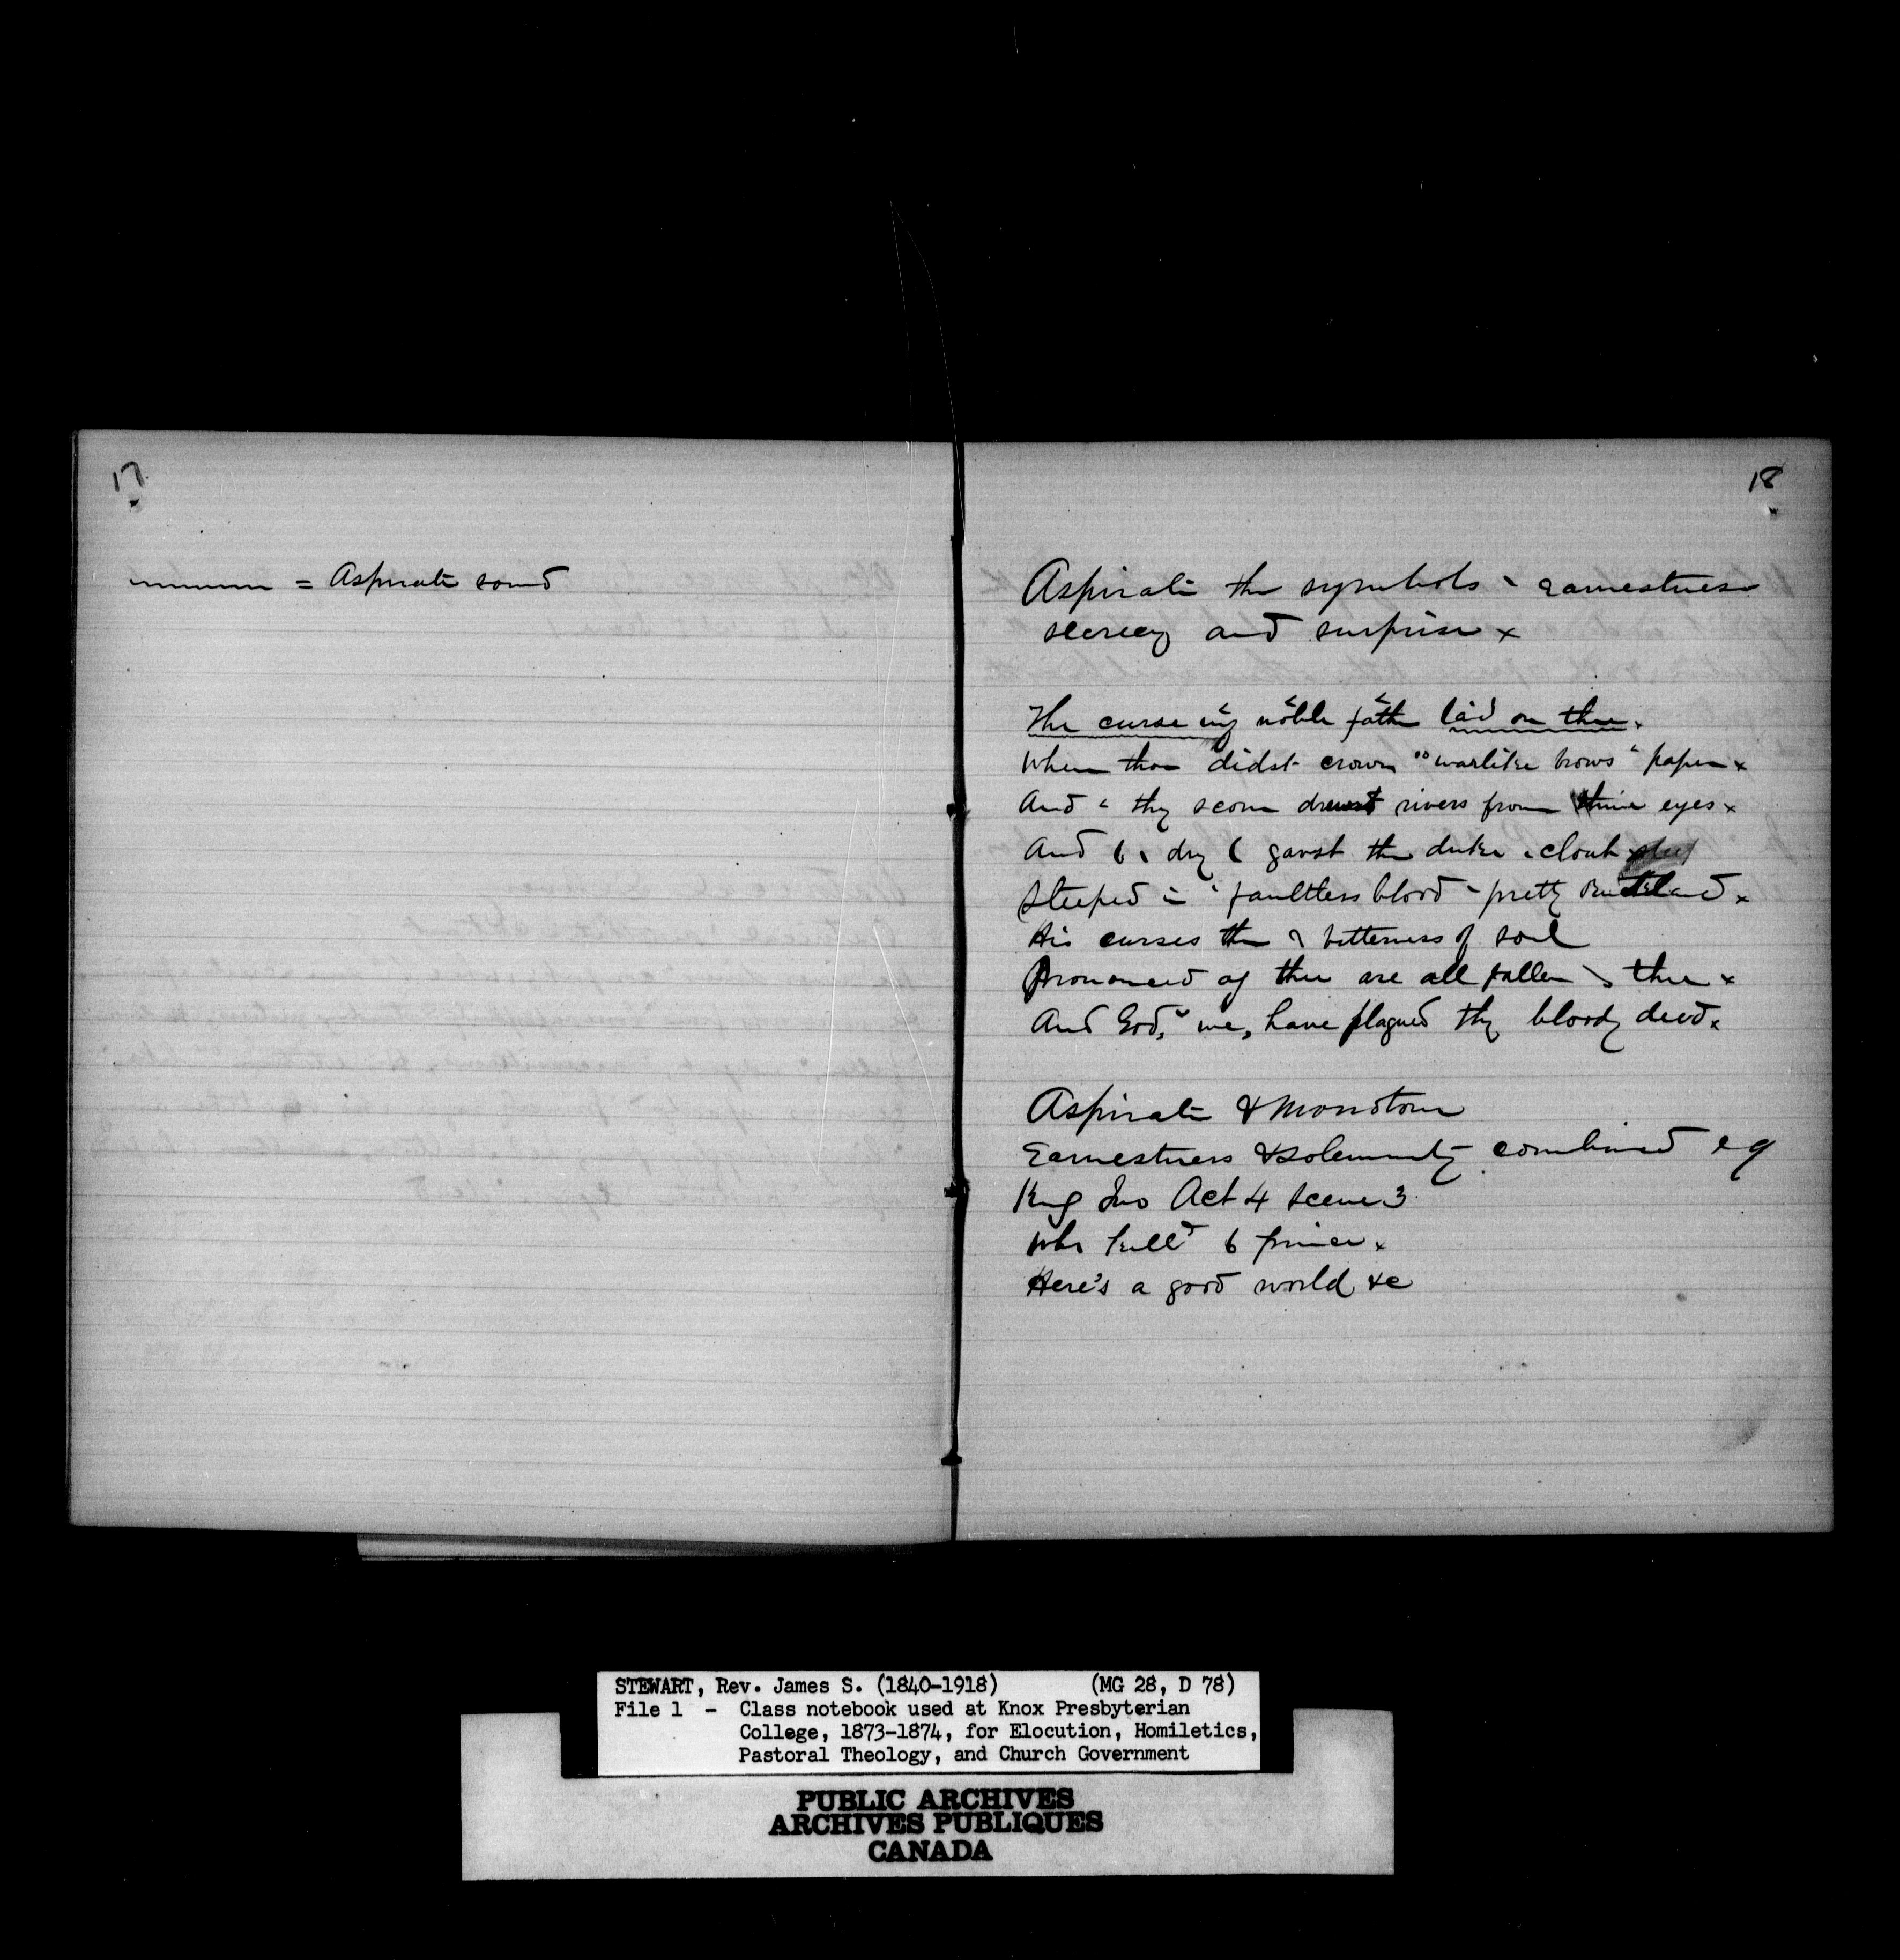 17
= Aspirate sound
18
Aspirate the symbols earnestness
secrecy and surprise x
The curse my noble father laid on thee.
When thou didst crown warlike brows paper x
And thy scorn drewst rivers from thine eyes x
And dry gavst the duke a clout
Steeped in faultless blood pretty Rutland x
His curses then bitterness of soul
Pronounced ag thee are all fallen thee x
And God, we, have plagued thy bloody deed x
Aspirate & Monotone
Earnestness & solemnity combined eg
King Jno Act 4 Scene 3
Who killd prince x
Here's a good world &c
STEWART, Rev. James S. (1840-1918) (MG 28, D 78)
File 1 - Class notebook used at Knox Presbyterian
College, 1873-1874, for Elocution, Homiletics,
Pastoral Theology, and Church Government
PUBLIC ARCHIVES
ARCHIVES PUBLIQUES
CANADA